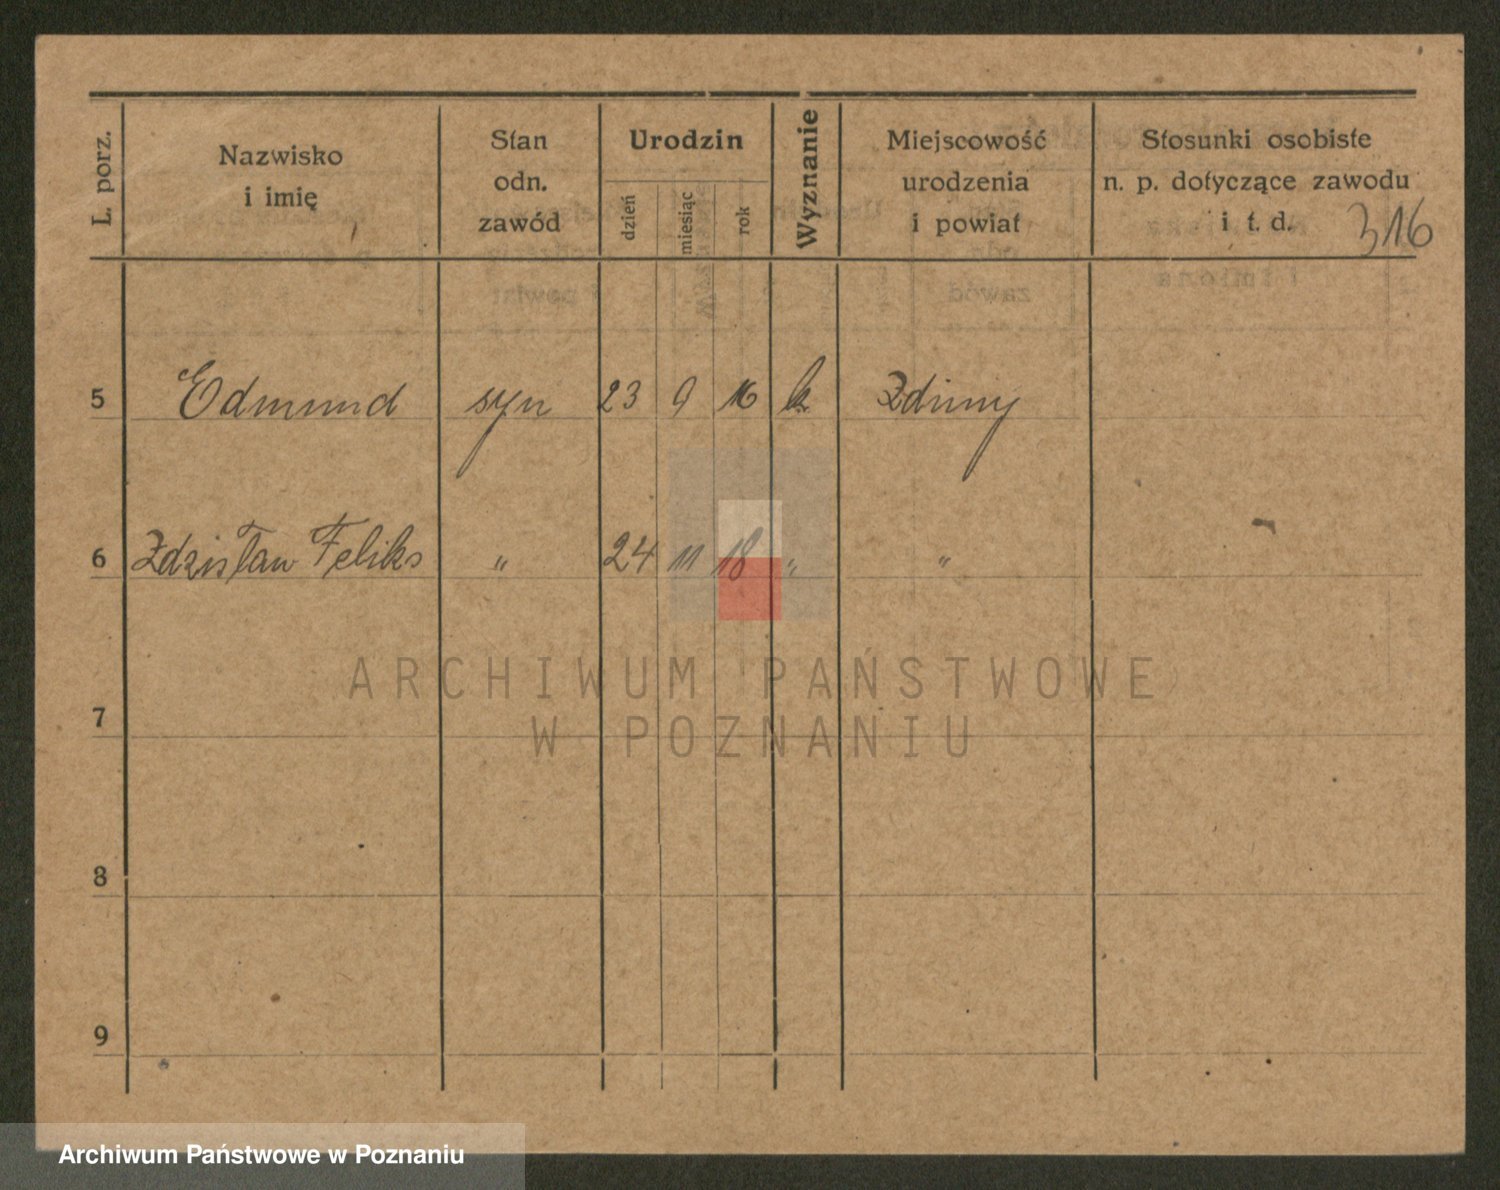 L. porz.
Nazwisko
i imię
Stan
odn.
zawód
Urodzin
dzień
miesiąc
rok
Wyznanie
Miejscowość
urodzenia
i powiat
Stosunki osobiste
n. p. dotyczące zawodu
i t. d.
316
5 Edmund syn 23 9 16 k. Zduny
6 Zdzisław Feliks " 24 11 18 " "
7
8
9
ARCHIWUM PAŃSTWOWE
W POZNANIU
Archiwum Państwowe w Poznaniu